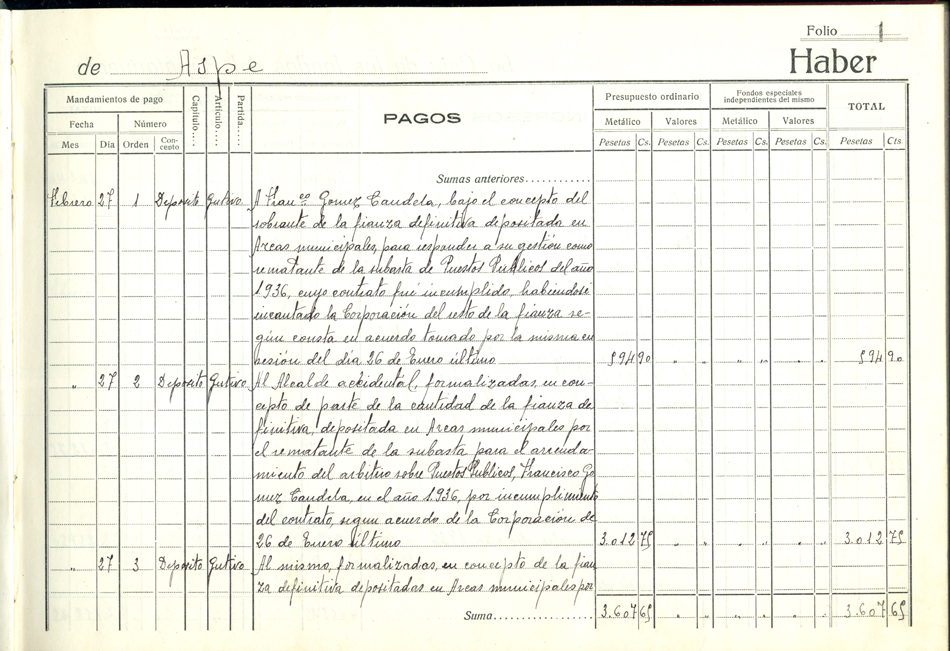 Folio 1
de Aspe
Haber
Mandamientos de pago
Capítulo....
Artículo....
Partida.....
PAGOS
Presupuesto ordinario
Fondos especiales
independientes del mismo
TOTAL
Fecha Número Metálico Valores Metálico Valores
Mes Día Orden Con-
cepto
Pesetas Cs. Pesetas Cs. Pesetas Cs. Pesetas Cs. Pesetas Cts.
Sumas anteriores............
Febrero 27 1 Deposito Gutivo A Franco Gomez Candela, bajo el concepto del
sobrante de la fianza definitiva depositada en
Arcas municipales, para responder a su gestión como
rematante de la subasta de Puestos Públicos del año
1936, cuyo contrato fué incumplido, habiendose
incautado la Corporación del resto de la fianza se-
gún consta en acuerdo tomado por la misma en
sesión del día 26 de Enero último 594 90 " " " " " " 594 90
" 27 2 Deposito Gutivo Al Alcalde accidental, formalizadas, en con-
cepto de parte de la cantidad de la fianza de
finitiva, depositada en Arcas municipales por
el rematante de la subasta para el arrenda-
miento del arbitrio sobre Puestos Publicos, Francisco Go
mez Candela, en el año 1.936, por incumplimiento
del contrato, segun acuerdo de la Corporación de
26 de Enero último 3.012 75 " " " " " " 3.012 75
" 27 3 Deposito Gutivo Al mismo, formalizadas, en concepto de la fian
za definitiva depositadas en Arcas municipales por
Suma.................. 3.607 65 " " " " " " 3.607 65